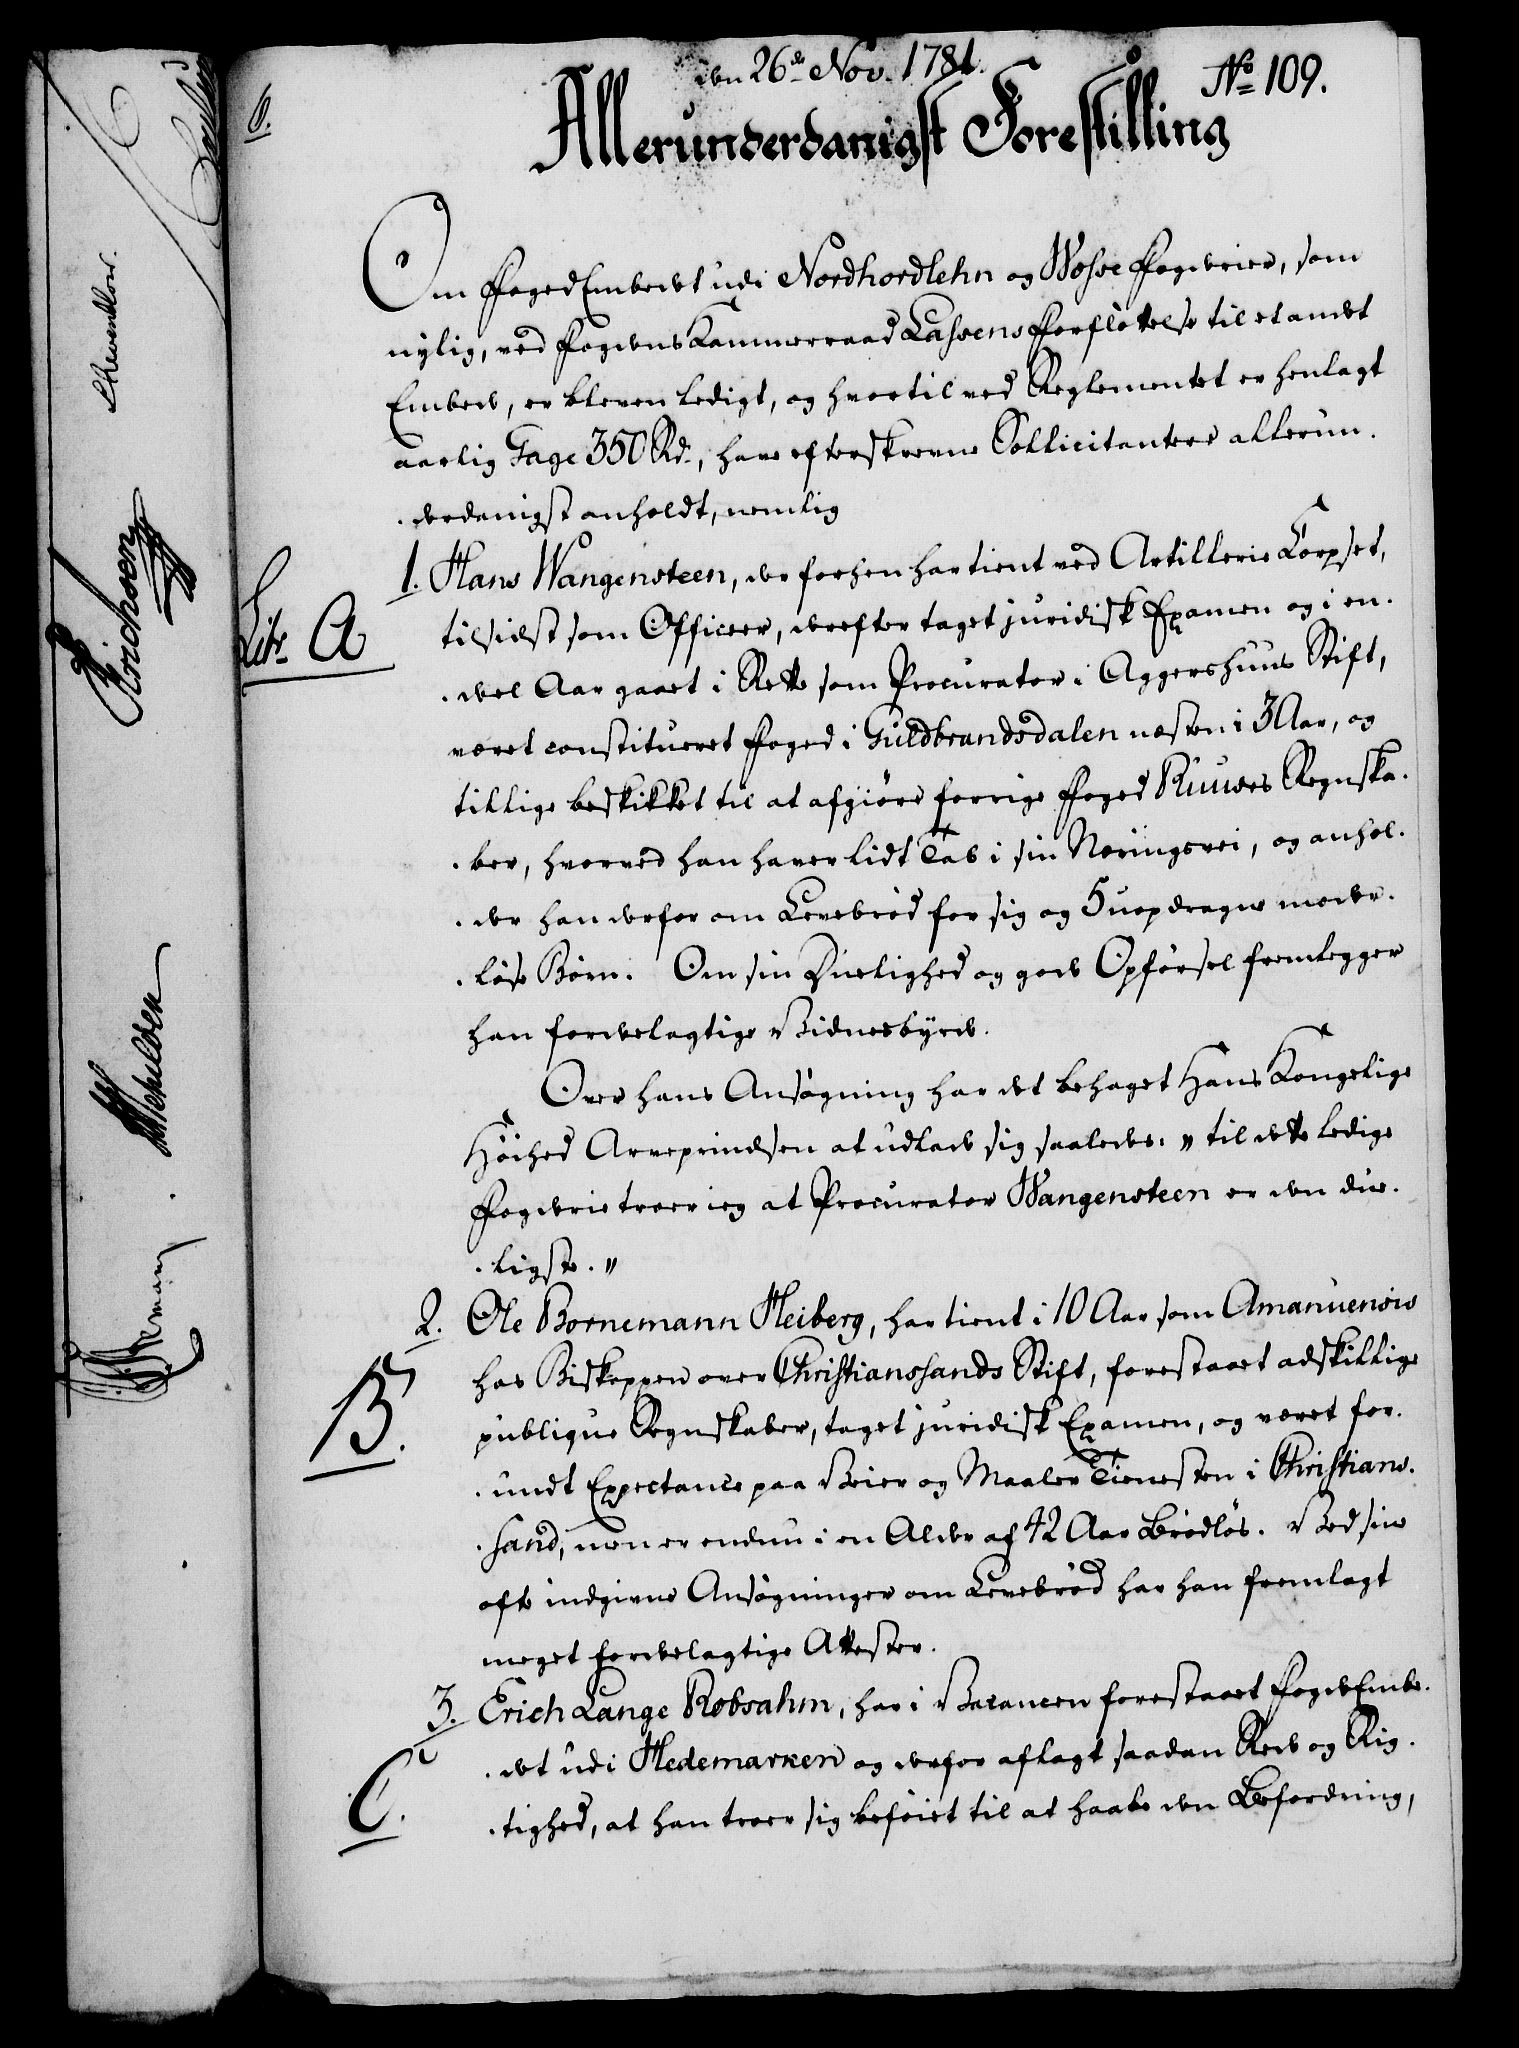 den 26de Nov. 1781.
No 109.
Allerunderdanigst Forestilling
Om FogedEmbedet udi Nordhordlehn og Wosse Fogderier, som
nylig, ved Fogdens Kammerraad Lassens Forflöttelse til et andet
Embede, er bleven ledigt, og hvortil ved Reglementet er henlagt
aarlig Gage 350 Rd., have efterskrevne Sollicitantere allerun-
derdanigst anholdt, nemlig
1. Hans Wangensteen, der forhen har tient ved Artillerie Corpset,
Litr A
tilsidst som Officeer, derefter taget juridisk Examen og i en-
deel Aar gaaet i Rette som Procurator i Aggershuus Stift,
været constitueret Foged i Guldbrandsdalen næsten i 3 Aar, og
tillige beskikket til at afgiöre forrige Foged Ruuses Regnska-
ber, hvorved han haver lidt Tab i sin Næringsvei, og anhol-
der han derfor om Levebröd for sig og 5 uopdragne moder-
löse Börn. Om sin Duelighed og gode Opförsel fremlegger
han fordeelagtige Vidnesbyrd.
Over hans Ansögning har det behaget Hans Kongelige
Höihed Arveprindsen at udlade sig saaledes: " til dette ledige
Fogderie troer ieg at Procurator Wangensteen er den due-
ligste. "
2. Ole Bornemann Heiberg, har tient i 10 Aar som Amanuensis
B.
hos Biskoppen over Christianssands Stift, forestaaet adskillige
publique Regnskaber, taget juridisk Examen, og været for-
undt Expectance paa Veier og Maaler Tienesten i Christians-
sand, men er endnu i en Alder af 42 Aar Brödlös. Ved sine
ofte indgivne Ansögninger om Levebröd har han fremlagt
meget fordeelagtige Attester.
3. Erich Lange Robsahm, har i Vacancen forestaaet FogedEmbe-
C.
det udi Hedemarken og derfor aflagt saadan Rede og Rig-
tighed, at han troer sig beföiet til at haabe den Befordring,